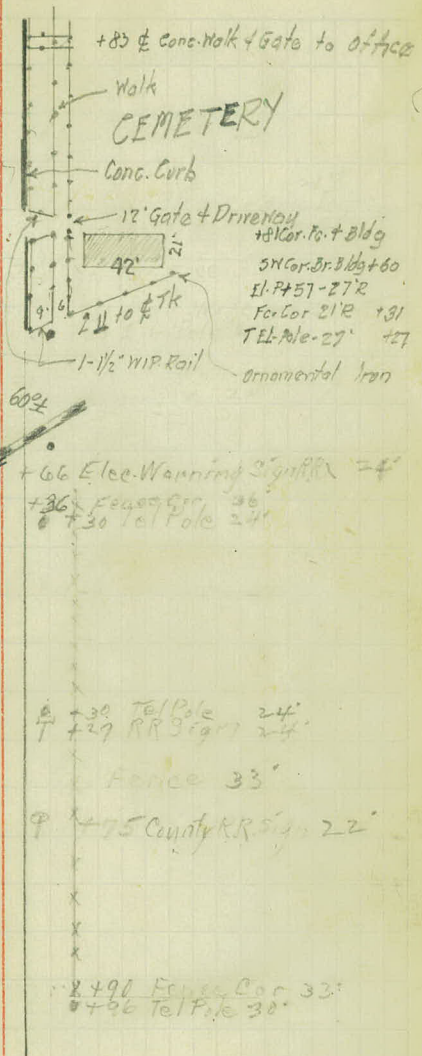 +83 ⅊ Conc. Walk & Gate to Office
Walk
CEMETERY
Conc. Curb
12' Gate & Driveway
+81 Cor. Fc. & Bldg
42'
21'
SW Cor. Br. Bldg +60
El. P +57-27'R
Fc. Cor 21'R +31
TEL-Pole-27' +27
4'
6'
∠ 11 to ⅊ Tk
1-1/2" W.I.P. Rail
Ornamental Iron
60°±
+66 Elec. Warning Sign RRX 24'
+36 Fence Cor 36'
+30 Tel Pole 24'
+30 Tel Pole 24'
+27 RR Sign 24'
Fence 33'
+75 County RR Sign 22'
+90 Fence Cor 33'
+96 Tel Pole 30'